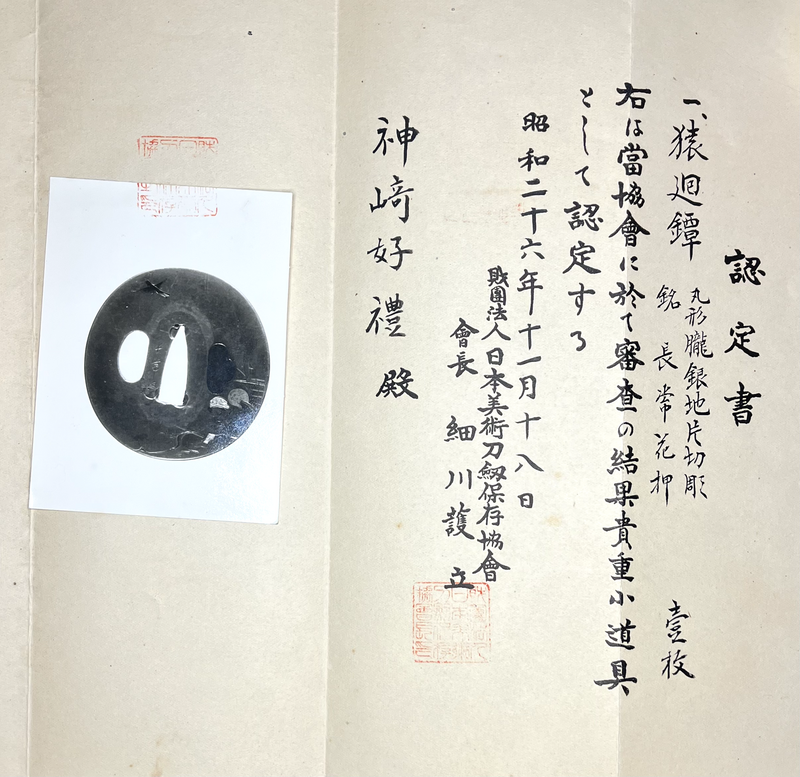 認定書
一、猿廻鐔
丸形朧銀地片切彫
銘 長常花押
壹枚
右は當協會に於て審査の結果貴重小道具
として認定する
昭和二十六年十一月十八日
財團法人日本美術刀劔保存協會
會長 細川護立
神﨑好禮殿